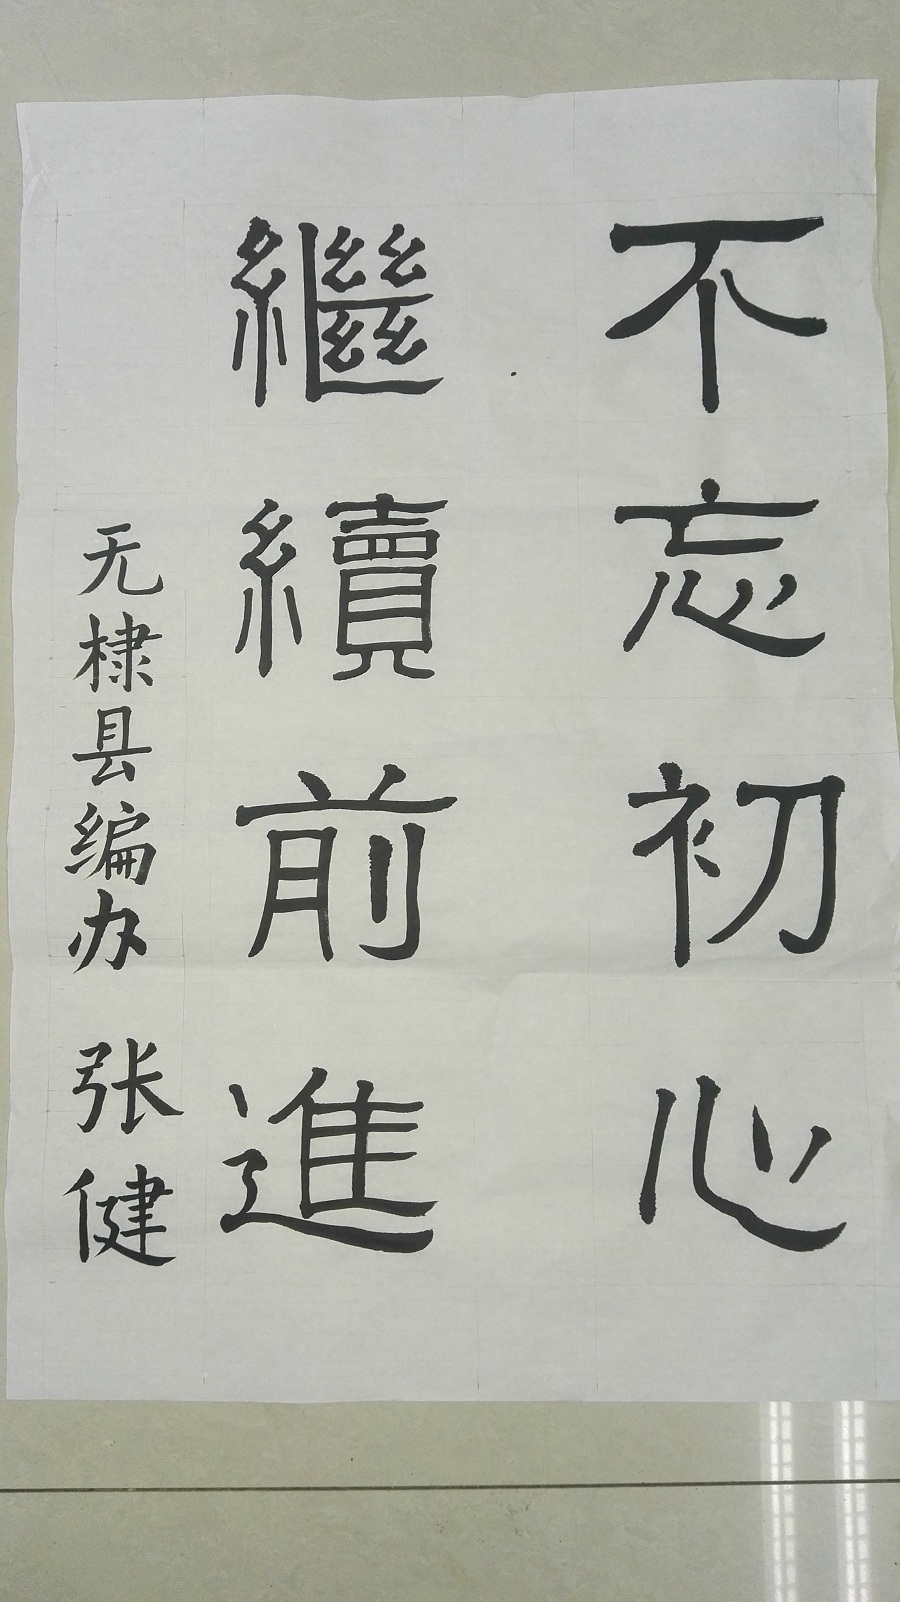 不忘初心
繼續前進
无棣县编办 张健